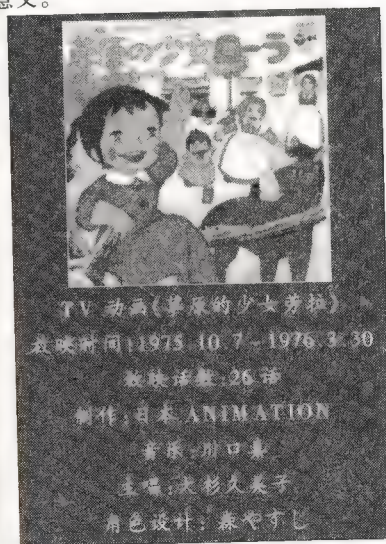 意义。
草原の少女ローラ
TV 动画(草原的少女劳拉)
放映时间:1975.10.7~1976.3.30
放映话数:26话
制作:日本 ANIMATION
音乐:川口真
主唱:大杉久美子
角色设计:森やすじ